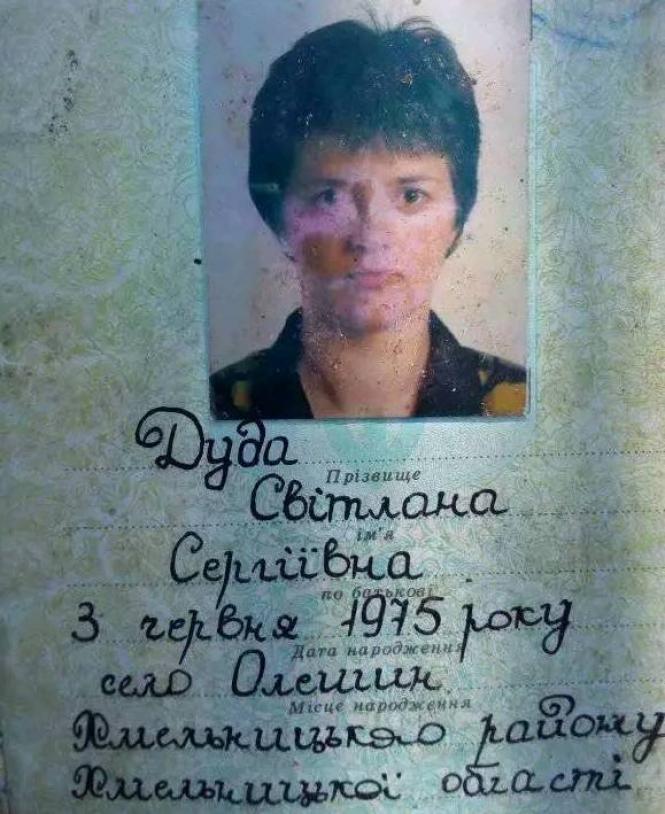 Дуда
Прізвище
Світлана
ім'я
Сергіївна
по батькові
3 червня 1975 року
Дата народження
село Олешин
Місце народження
Хмельницького району
Хмельницкої області